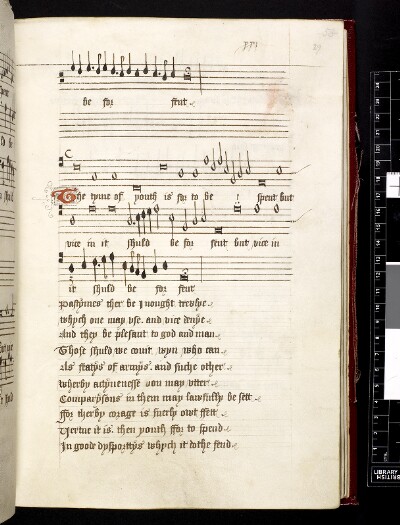 be for fent
The tyme of youth is for to be spent but
vice in it shuld be for fent but vice in
it shuld be for fent
Pastymes ther be I nought trewlye
whych one may vse. and vice denye
And they be plesant to god and man
Those shuld we couit wyn who can
As featys of armys. and suche other
wherby actyuenesse oon may vtter
Comparysons in them may lawfully be sett
ffor therby corage is suerly owt ffett
Vertue it is. then youth ffor to spend
In goode dysporttys whych it dothe fend
LIBRARY
BRITISH